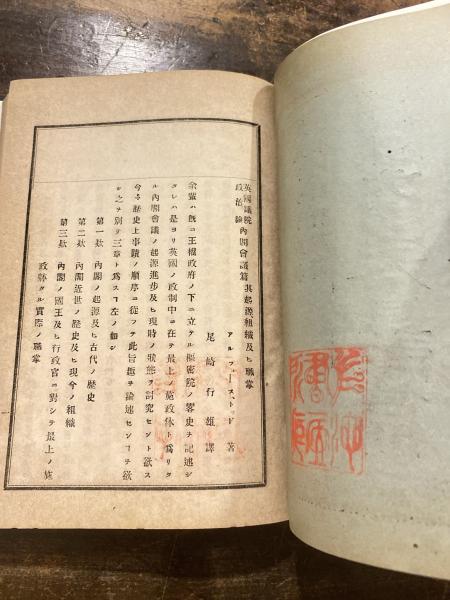 英國議院政治論 內閣會議篇其起源組織及ヒ職掌
アルフユース、トッド 著
尾崎行雄 譯
余輩ハ既ニ王權政府ノ下ニ立テル樞密院ノ畧史ヲ記述シ
タレハ是ヨリ英國ノ政制中ニ在テ最上ノ施政体ト爲リタ
ル內閣會議ノ起源進步及ヒ現時ノ狀態ヲ討究セント欲ス
今マ歷史上事蹟ノ順序ニ從フテ此旨趣ヲ論述センコヲ欲
シ之ヲ別テ三章ト爲スコ左ノ如シ
第一欵 內閣ノ起源及ヒ古代ノ歷史
第二欵 內閣近世ノ歷史及ヒ現今ノ組織
第三欵 內閣ノ國王及ヒ行政官ニ對シテ最上ノ施
政勢タル實際ノ職掌